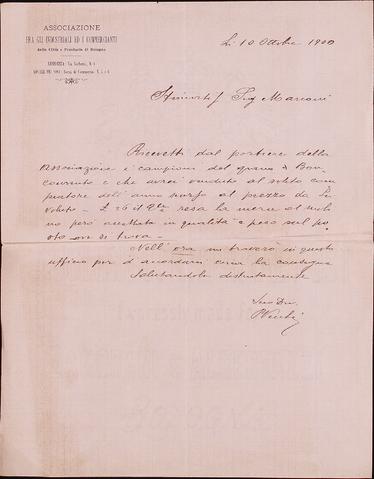 ASSOCIAZIONE
FRA GLI INDUSTRIALI ED I COMMERCIANTI
della Città e Provincia di Bologna
Lì 10 Ottobre 1900
Sig Marconi
Ricevetti dal portiere della
Associazione i campioni del grano di Bon
convento e che avrei venduto al solito com
pratore dell'anno
al prezzo da Lei
voluto - £ 26 il resa la merce al moli
no però accettata in qualità e peso sul
posto ove si trova -
Nell' ora mi troverò in questo
ufficio per d'accordarci circa la consegna
Salutandola distintamente
Suo Dev.